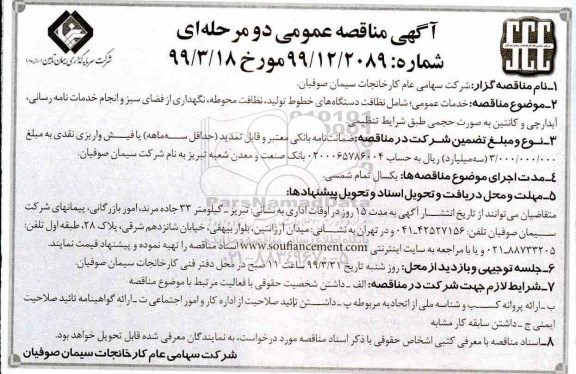 آگهی مناقصه عمومی دو مرحله‌ای
شماره: ۹۹/۱۲/۲۰۸۹ مورخ ۹۹/۳/۱۸
SCC
شرکت سرمایه‌گذاری سیمان تأمین
۱-نام مناقصه گزار: شرکت سهامی عام کارخانجات سیمان صوفیان.
۲-موضوع مناقصه: خدمات عمومی؛ شامل نظافت دستگاه‌های خطوط تولید، نظافت محوطه، نگهداری از فضای سبز و انجام خدمات نامه رسانی،
آبدارچی و کانتین به صورت حجمی طبق شرایط تنظیمی
۳-نوع و مبلغ تضمین شرکت در مناقصه: ضمانت‌نامه بانکی معتبر و قابل تمدید (حداقل سه‌ماهه) یا فیش واریزی نقدی به مبلغ
۳/۰۰۰/۰۰۰/۰۰۰ (سه‌میلیارد) ریال به حساب ۰۲۰۰۰۶۵۷۸۶۰۰۴ بانک صنعت و معدن شعبه تبریز به نام شرکت سیمان صوفیان.
۴-مدت اجرای موضوع مناقصه‌ها: یکسال تمام شمسی.
۵-مهلت و محل دریافت و تحویل اسناد و تحویل پیشنهادها:
متقاضیان می‌توانند از تاریخ انتشار آگهی به مدت ۱۵ روز در اوقات اداری به نشانی: تبریز - کیلومتر ۳۳ جاده مرند، امور بازرگانی، پیمانهای شرکت
سیمان صوفیان تلفن: ۴۲۵۲۷۱۵۶-۰۴۱ و در تهران به نشانی: میدان آرژانتین، بلوار بیهقی، خیابان شانزدهم شرقی، پلاک ۲۸، طبقه اول تلفن:
۸۸۷۳۳۲۰۵-۰۲۱ و یا با مراجعه به سایت اینترنتی www.soufiancement.com اسناد مناقصه را تهیه نموده و پیشنهاد قیمت نمایند.
۶-جلسه توجیهی و بازدید از محل: روز شنبه تاریخ ۹۹/۳/۳۱ ساعت ۱۱ صبح در محل دفتر فنی کارخانجات سیمان صوفیان.
۷-شرایط لازم جهت شرکت در مناقصه: الف-داشتن شخصیت حقوقی با فعالیت مرتبط با موضوع مناقصه
ب-ارائه پروانه کسب و شناسه ملی از اتحادیه مربوطه پ-داشتن تائید صلاحیت از اداره کار و امور اجتماعی ت-ارائه گواهینامه تائید صلاحیت
ایمنی ج-داشتن سابقه کار مشابه
۸-اسناد مناقصه با معرفی کتبی اشخاص حقوقی با ذکر اسناد مناقصه مورد درخواست، به نمایندگان معرفی شده قابل تحویل خواهد بود.
شرکت سهامی عام کارخانجات سیمان صوفیان
ParsNamadData
۰۲۱-۸۸۳۴۹۶۷۰-۵